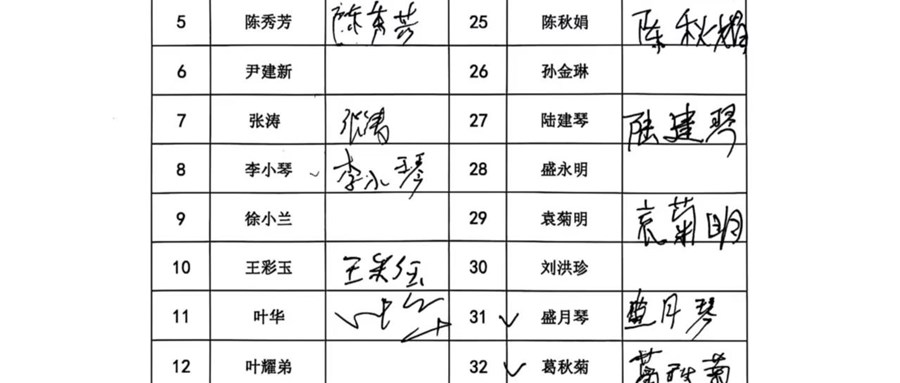 5 陈秀芳 陈秀芳 25 陈秋娟 陈秋娟
6 尹建新 26 孙金琳
7 张涛 张涛 27 陆建琴 陆建琴
8 李小琴 李小琴 28 盛永明
9 徐小兰 29 袁菊明 袁菊明
10 王彩玉 王彩玉 30 刘洪珍
11 叶华 叶华 31 盛月琴 盛月琴
12 叶耀弟 32 葛秋菊 葛秋菊